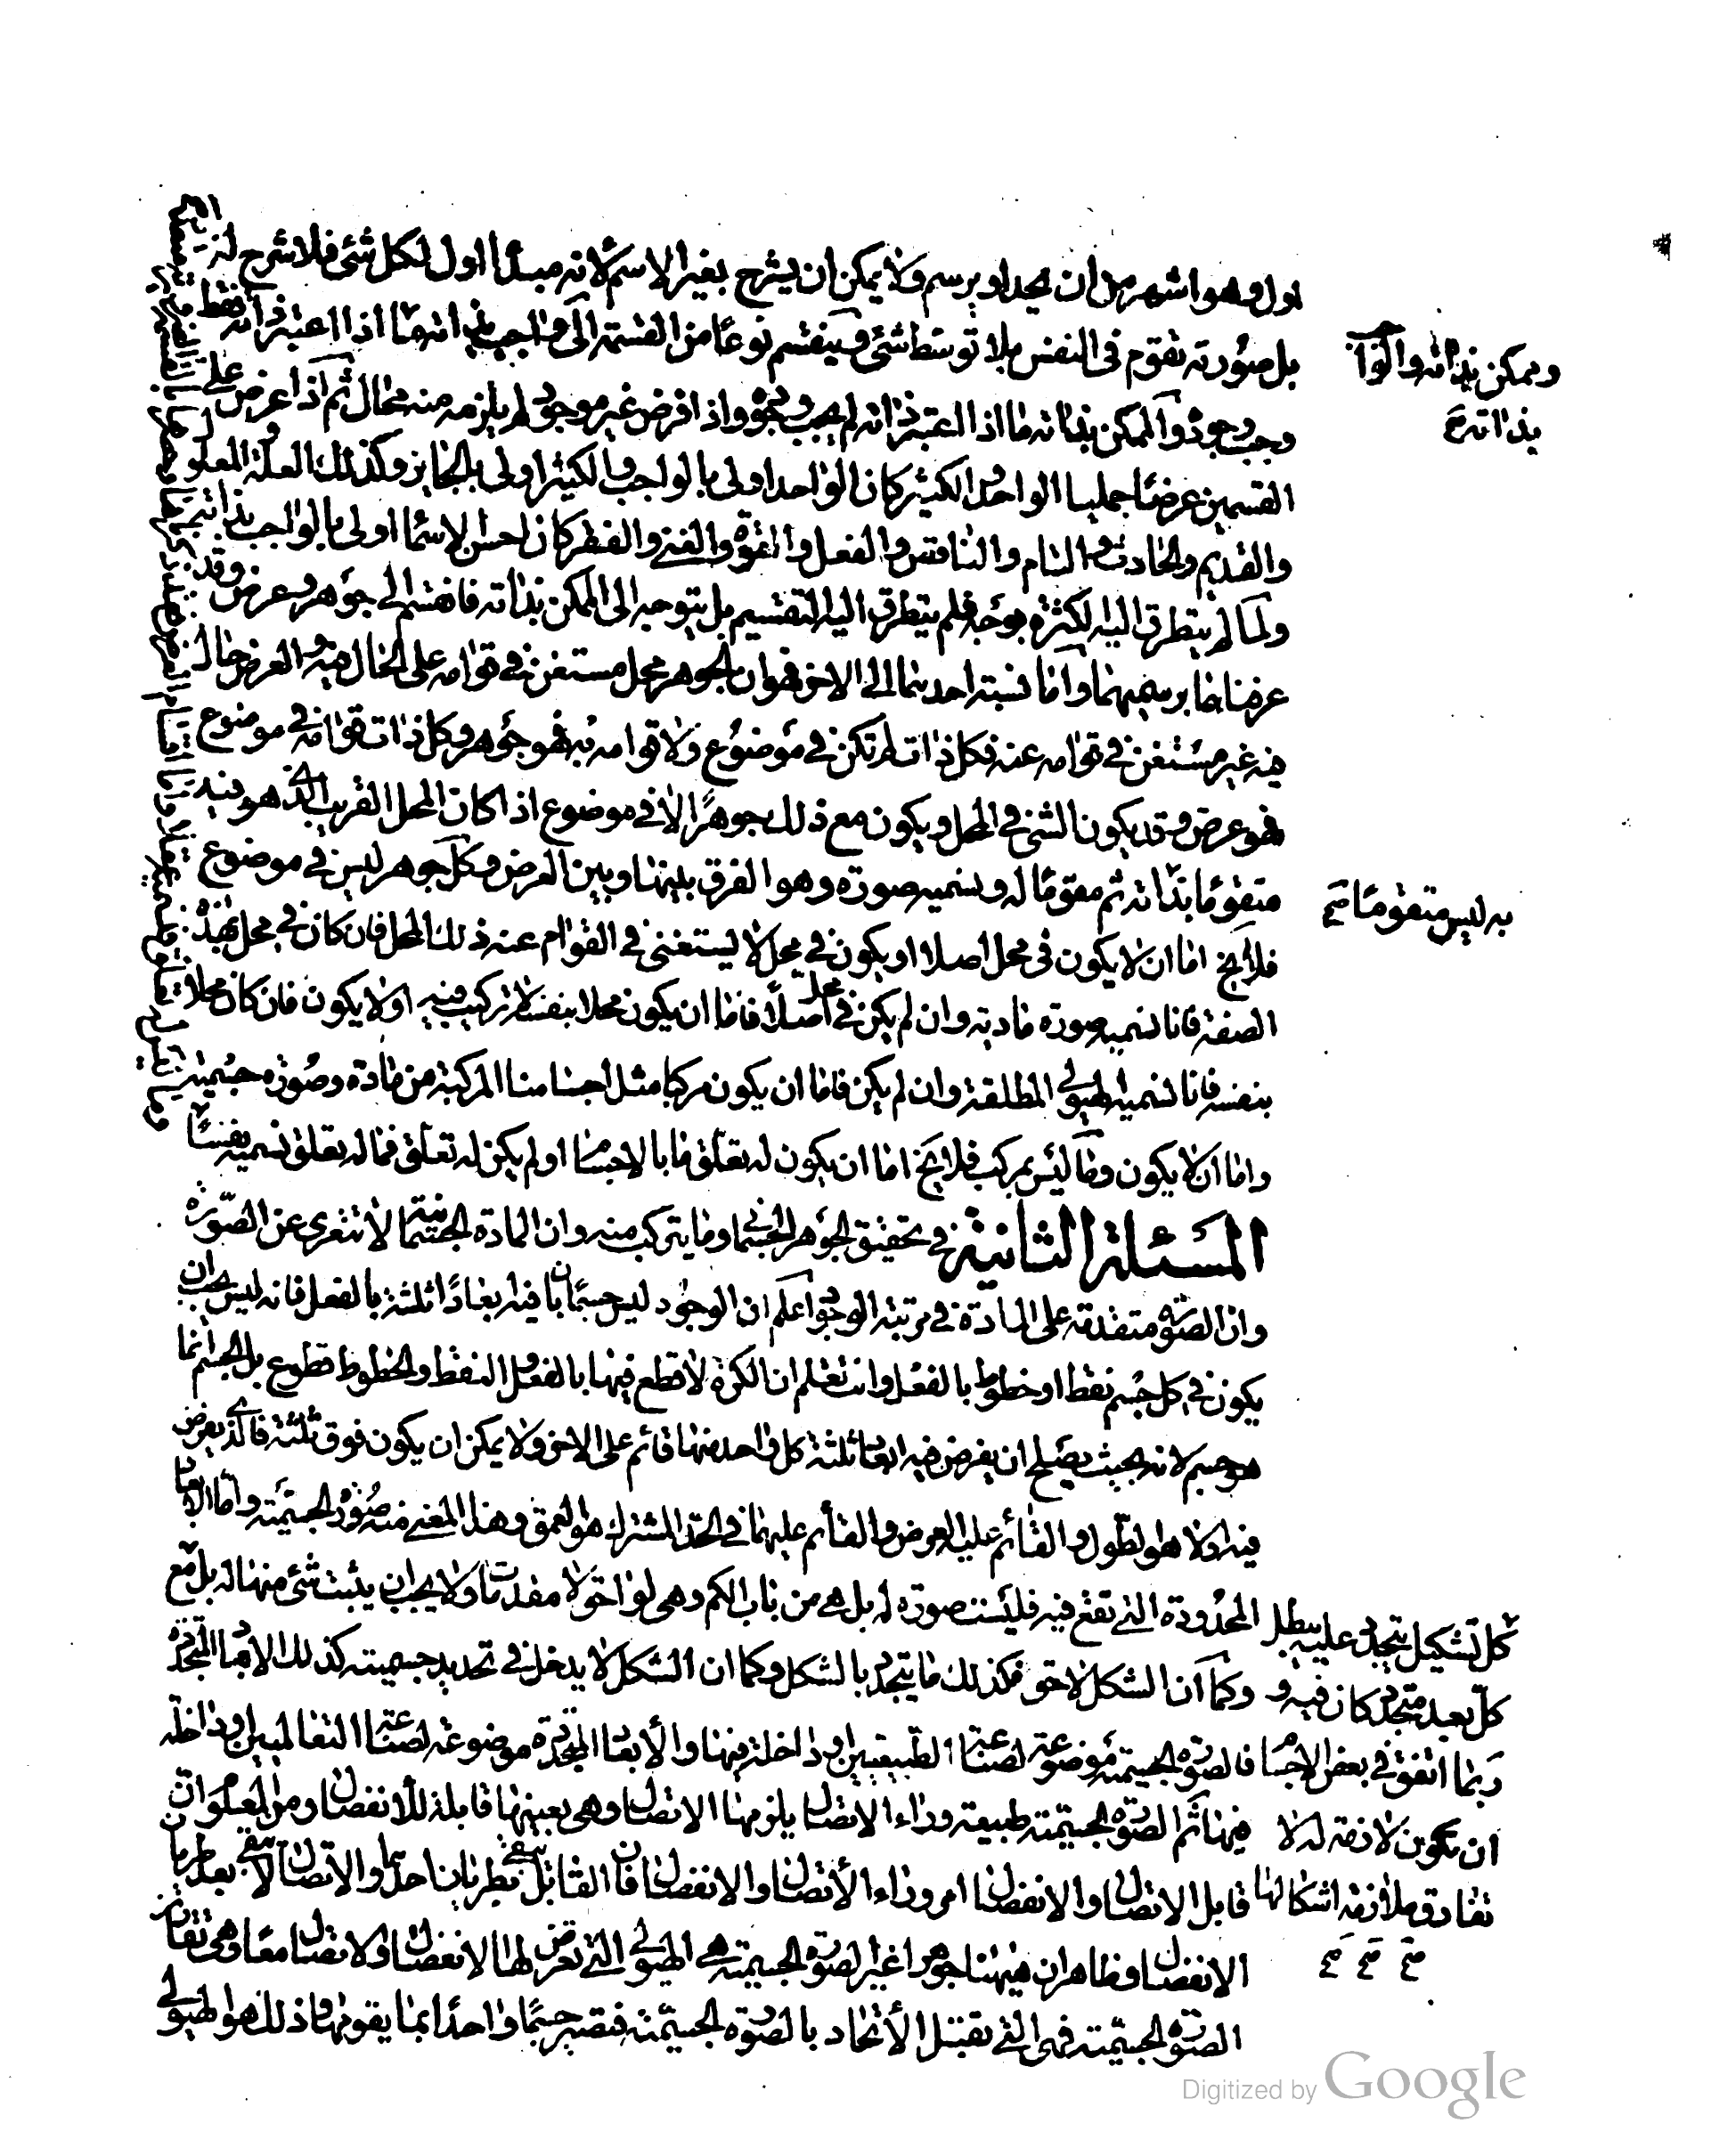 اول وهو اشهر من ان يحد او يرسم ولا يمكن ان يشرح بغير الاسم لانه مبدأ اول لكل شئ فلا شرح له
بل صورته تقوم فى النفس بلا توسط شئ وينقسم نوعا من القسمة الى واجب بذاته اذا اعتبر ذاته فقط
وممكن بذاته والواجب
بذاته صح
وجب وجوده والممكن بذاته ما اذا اعتبر ذاته لم يجب وجوده واذا فرض غير موجود لم يلزم منه محال ثم اذا عرض على
القسمين عرضا حمليا الواحد والكثير كان الواحد اولى بالواجب والكثير اولى بالجايز وكذلك العلة والمعلول
والقديم والحادث والتام والناقص والفعل والقوة والغنى والفقر كان احسن الاسماء اولى بالواجب بذاته
ولما لم يتطرق اليه الكثرة بوجه فلم يتطرق اليه التقسيم بل يتوجه الى الممكن بذاته فانقسم الى جوهر وعرض وقد
عرفناهما برسميهما واما نسبة احدهما الى الاخر فهو ان الجوهر محل مستغن فى قوامه على الحال فيه والعرض حال
فيه غير مستغن فى قوامه عنه فكل ذات لم تكن فى موضوع ولا قوامه به فهو جوهر وكل ذات قوامه فى موضوع
فهو عرض وقد يكون الشئ فى المحل ويكون مع ذلك جوهرا لا فى موضوع اذا كان المحل القريب الذى هو فيه
متقوما به ليس متقوما بذاته ثم مقوما له ونسميه صورة وهو الفرق بينها وبين العرض وكل جوهر ليس فى موضوع
فلا يخ اما ان لا يكون فى محل اصلا او يكون فى محل لا يستغنى فى القوام عنه ذلك المحل فان كان فى محل بهذه
الصفة فانا نسميه صورة مادية وان لم يكن فى محل اصلا فاما ان يكون محلا بنفسه لا تركيب فيه او لا يكون فان كان محلا
بنفسه فانا نسميه الهيولى المطلقة وان لم يكن فاما ان يكون مركبا مثل اجسامنا المركبة من مادة وصورة جسمية
واما ان لا يكون وما ليس بمركب فلا يخ اما ان يكون له تعلق ما بالاجسام او لم يكن له تعلق فما له تعلق نسميه نفسا
المسئلة الثانية فى تحقيق الجوهر الجسمانى وما يتركب منه وان المادة الجسمانية لا تتعرى عن الصورة
وان الصورة متقدمة على المادة فى مرتبة الوجود اعلم ان الوجود ليس جسما بان فيه ابعادا ثلثة بالفعل فانه ليس يجب ان
يكون فى كل جسم نقط او خطوط بالفعل وانت تعلم ان الكرة لا قطع فيها بالفعل والنقط والخطوط قطوع بل الجسم انما
هو جسم لانه بحيث يصلح ان يفرض فيه ابعاد ثلثة كل واحد منها قائم على الاخر ولا يمكن ان يكون فوق ثلثة فالذى يفرض
فيه اولا هو الطول والقائم عليه العرض والقائم عليهما فى الحد المشترك هو العمق وهذا المعنى منه صورة الجسمية واما الابعاد
المحدودة التى تقع فيه فليست صورة له بل هى من باب الكم وهى لواحق لا مقدمات ولا يجب ان يثبت شئ منها له بل مع
كل تشكيل يتجدد عليه يبطل
كل بعد متجدد كان فيه و
ربما اتفق فى بعض الاجسام
ان تكون لازمة له لا
تفارق ملازمة اشكالها
صح صح صح
وكما ان الشكل لاحق فكذلك ما يتجدد بالشكل وكما ان الشكل لا يدخل فى تحديد جسميته كذلك الابعاد المتجددة
فالصورة الجسمية موضوعة لصناعة الطبيعيين او داخلة فيها والابعاد المتجددة موضوعة لصناعة التعالميين او داخلة
فيها ثم الصورة الجسمية طبيعة وراء الاتصال يلزمها الاتصال وهى بعينها قابلة للانفصال ومن المعلوم ان
قابل الاتصال والانفصال امر وراء الاتصال والانفصال فان القابل يبقى بطريان احدهما والاتصال لا يبقى بعد طريان
الانفصال وظاهر ان هيهنا جوهرا غير الصورة الجسمية هى الهيولى التى تعرض لها الانفصال والاتصال معا وهى تقارن
الصورة الجسمية فهى التى تقبل الاتحاد بالصورة الجسمية فتصير جسما واحدا بما يقومها وذلك هو الهيولى
Digitized by Google